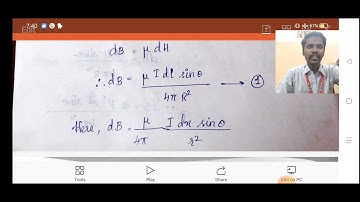 7:40
97%
Edit
dB = μ dH
∴ dB = μ I dl sinθ / 4π R² → ①
Here, dB = μ/4π I dx sinθ / r²
Tools
Play
Share
Edit on PC